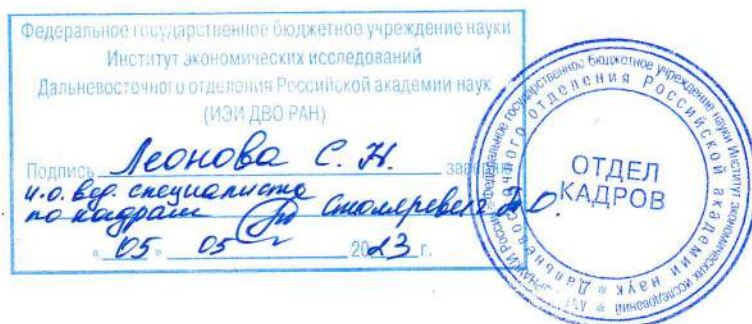 Федеральное государственное бюджетное учреждение науки
Институт экономических исследований
Дальневосточного отделения Российской академии наук
(ИЭИ ДВО РАН)
Подпись Леонова С. Н.
и.о. вед. специалиста
по кадрам
« 05 » 05 2023 г.
Федеральное государственное бюджетное учреждение науки Институт экономических исследований
Дальневосточного отделения Российской академии наук
ОТДЕЛ
КАДРОВ